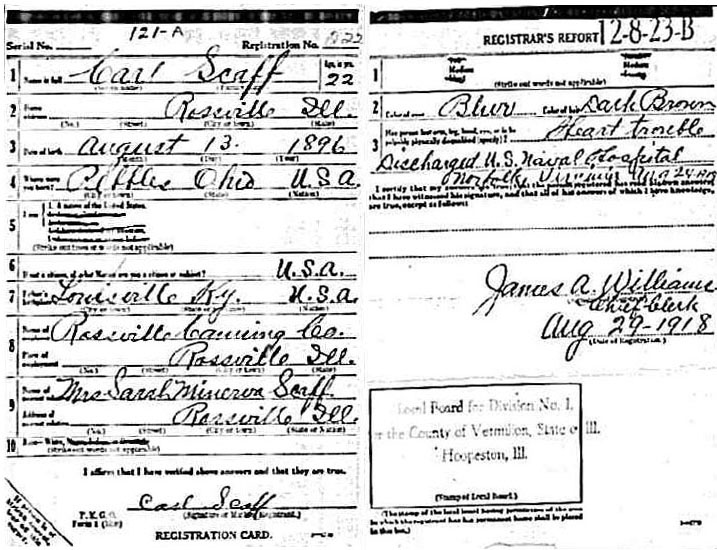 121-A
Serial No. Registration No.
1 Name in full Carl Scaff Age, in yrs. 22
(Given name) (Family name)
2 Home address Rossville Ill.
(No.) (Street) (City or town) (State)
3 Date of birth August 13. 1896
(Month) (Day) (Year)
4 Where were you born? Pebbles Ohio U.S.A.
(City or town) (State) (Nation)
5 I am 1. A native of the United States.
(Strike out lines or words not applicable)
6 If not a citizen, of what Nation are you a citizen or subject? U.S.A.
7 Father's birthplace Louisville Ky. U.S.A.
(City or town) (State or country) (Nation)
8 Name of employer Rossville Canning Co.
Place of employment Rossville Ill.
(No.) (Street) (City or town) (State)
9 Name of nearest relative Mrs Sarah Minerva Scaff
Address of nearest relative Rossville Ill.
(No.) (Street) (City or town) (State or Nation)
10 Race—White,
(Strike out words not applicable)
I affirm that I have verified above answers and that they are true.
P. M. G. O.
Form 1
Carl Scaff
(Signature or Mark of Registrant.)
REGISTRATION CARD.
REGISTRAR'S REPORT 12-8-23-B
1 Medium Medium
(Strike out words not applicable)
2 Color of eyes Blue Color of hair Dark Brown
3 Has person lost arm, leg, hand, eye, or is he
palpably physically disqualified (specify)? Heart trouble
Discharged U.S. Naval Hospital
Norfolk, Virginia Aug 24
I certify that my answers are true; that the person registered has read his own answers;
that I have witnessed his signature, and that all of his answers of which I have knowledge,
are true, except as follows:
James A. Williams
Chief Clerk
Aug 29-1918
(Date of Registration.)
Local Board for Division No. 1,
for the County of Vermilion, State of Ill.
Hoopeston, Ill.
(Stamp of Local Board.)
(The stamp of the local board having jurisdiction of the area
in which the registrant has his permanent home shall be placed
in this box.)